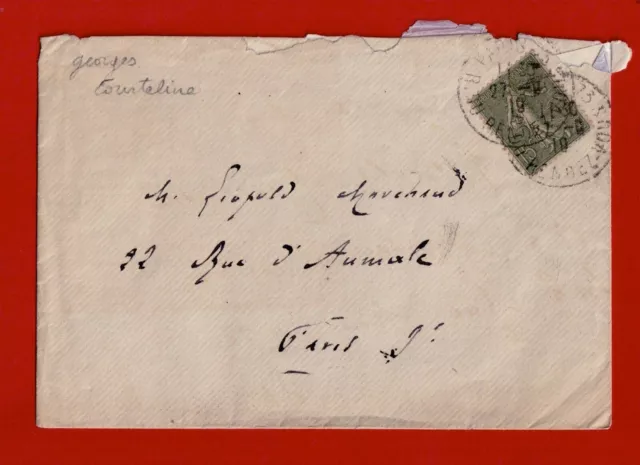 georges
Courteline
M. Léopold Marchand
22 Rue d'Aumale
Paris 9e